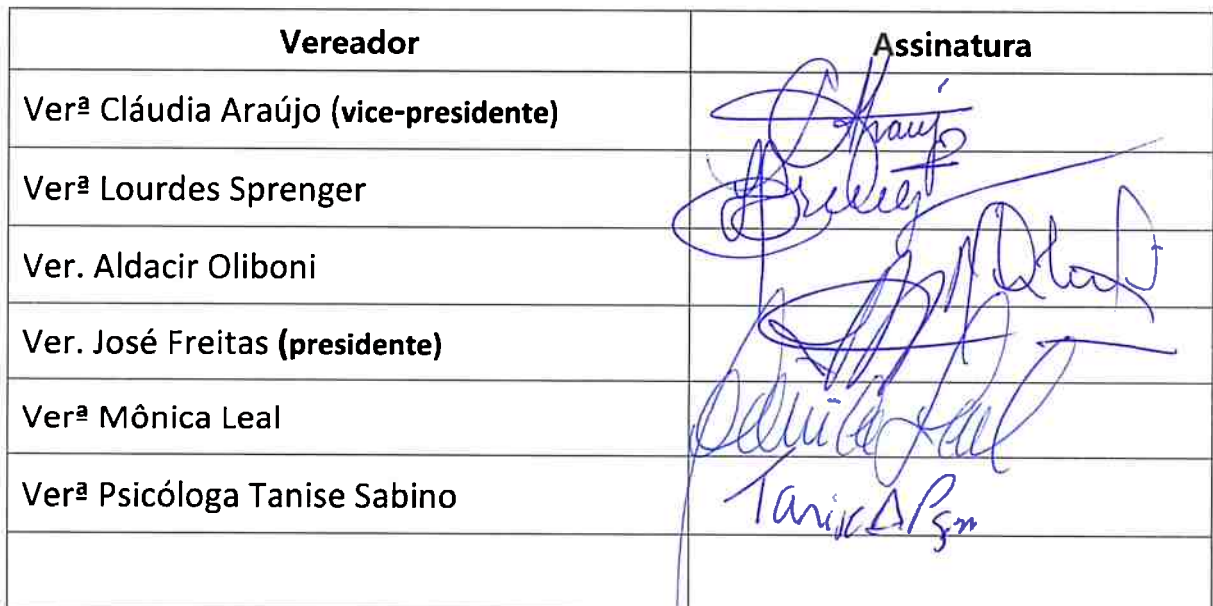 Vereador Assinatura
Verª Cláudia Araújo (vice-presidente)
Verª Lourdes Sprenger
Ver. Aldacir Oliboni
Ver. José Freitas (presidente)
Verª Mônica Leal
Verª Psicóloga Tanise Sabino